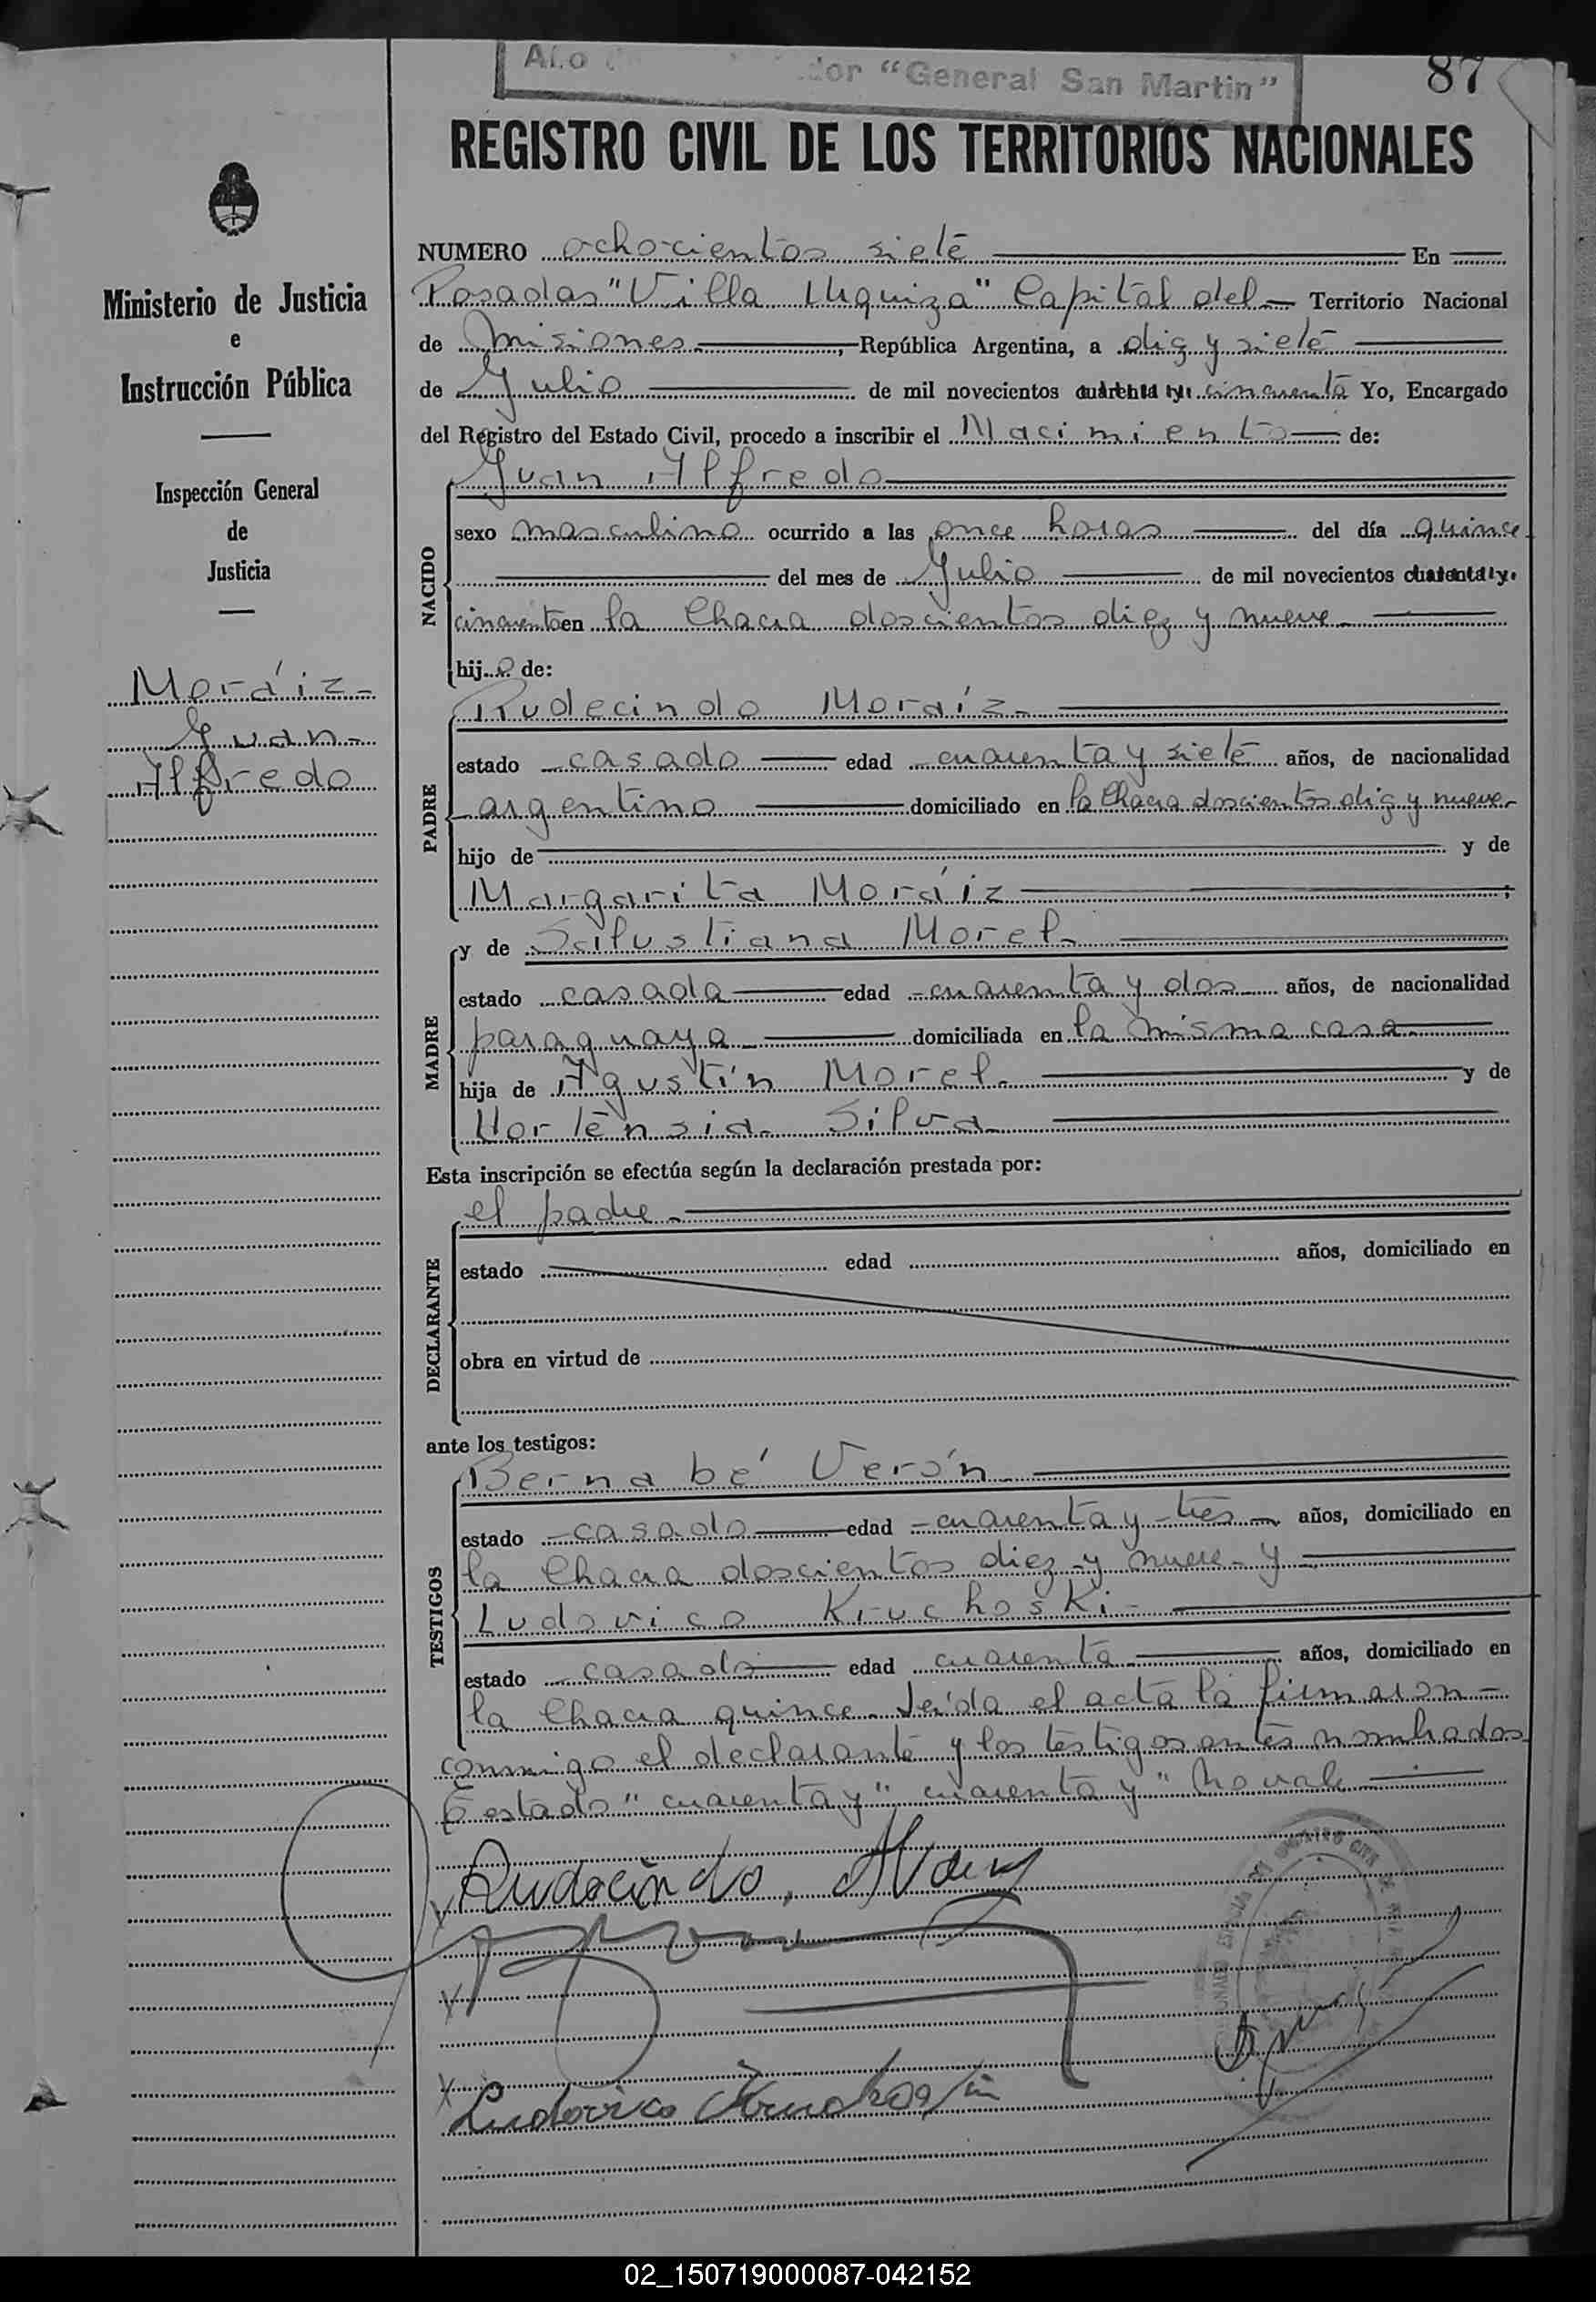 "General San Martin"
87
REGISTRO CIVIL DE LOS TERRITORIOS NACIONALES
Ministerio de Justicia
e
Instrucción Pública
Inspección General
de
Justicia
Moráiz-
Juan-
Alfredo
NUMERO ochocientos siete En
Posadas "Villa Urquiza" Capital del Territorio Nacional
de Misiones, República Argentina, a diez y siete
de Julio de mil novecientos cuarenta y cincuenta Yo, Encargado
del Registro del Estado Civil, procedo a inscribir el Nacimiento de:
NACIDO
Juan Alfredo
sexo masculino ocurrido a las once horas del día quince
del mes de Julio de mil novecientos cuarenta y
cincuenta en la Chacra doscientos diez y nueve-
hijo de:
PADRE
Rudecindo Moráiz-
estado casado edad cuarenta y siete años, de nacionalidad
argentino domiciliado en la Chacra doscientos diez y nueve-
hijo de y de
Margarita Moráiz ;
MADRE
y de Salustiana Morel-
estado casada edad cuarenta y dos años, de nacionalidad
paraguaya domiciliada en la misma casa-
hija de Agustín Morel- y de
Hortensia Silva
Esta inscripción se efectúa según la declaración prestada por:
DECLARANTE
el padre-
estado edad años, domiciliado en
obra en virtud de
ante los testigos:
TESTIGOS
Bernabé Verón-
estado casado edad cuarenta y tres años, domiciliado en
la Chacra doscientos diez y nueve- y
Ludovico Kruchoski-
estado casado edad cuarenta años, domiciliado en
la Chacra quince- Leída el acta la firmaron-
conmigo el declarante y los testigos antes nombrados
Testado "cuarenta y" cuarenta y" No vale
Rudecindo,
Ludovico
02_150719000087-042152